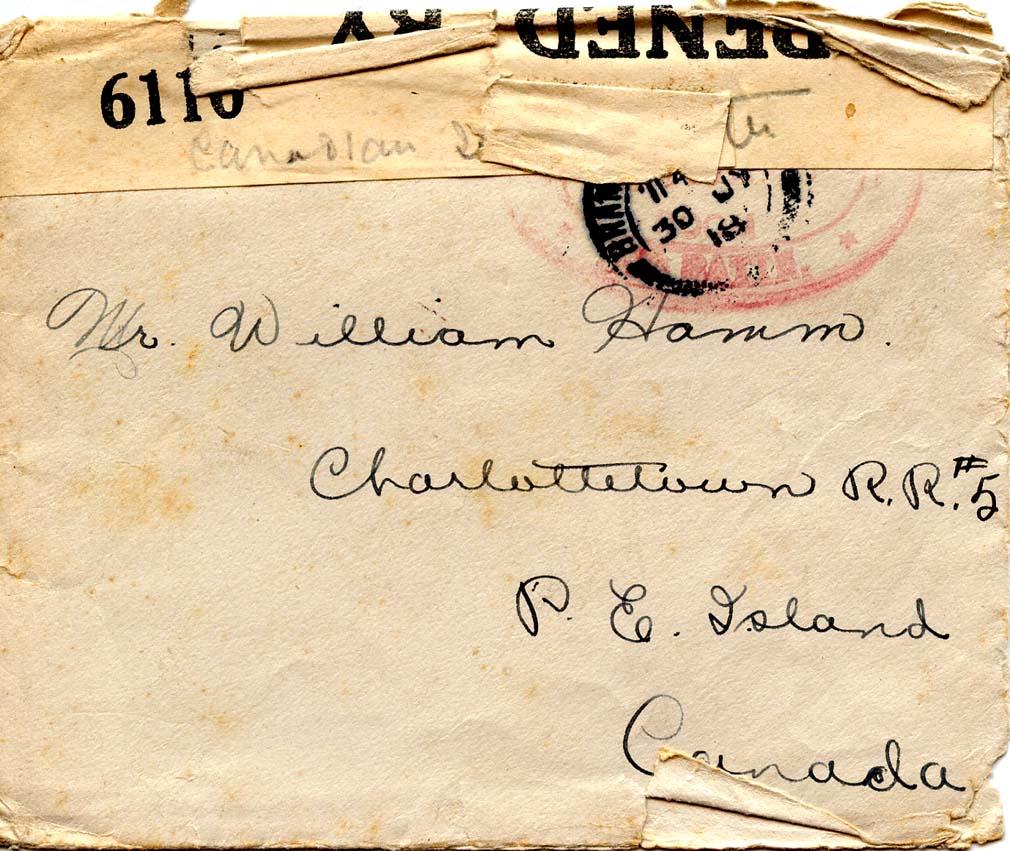 OPENED BY
6110
Canadian
30 JY
18
Mr. William Hamm.
Charlottetown R.R. #5
P. E. Island
Canada